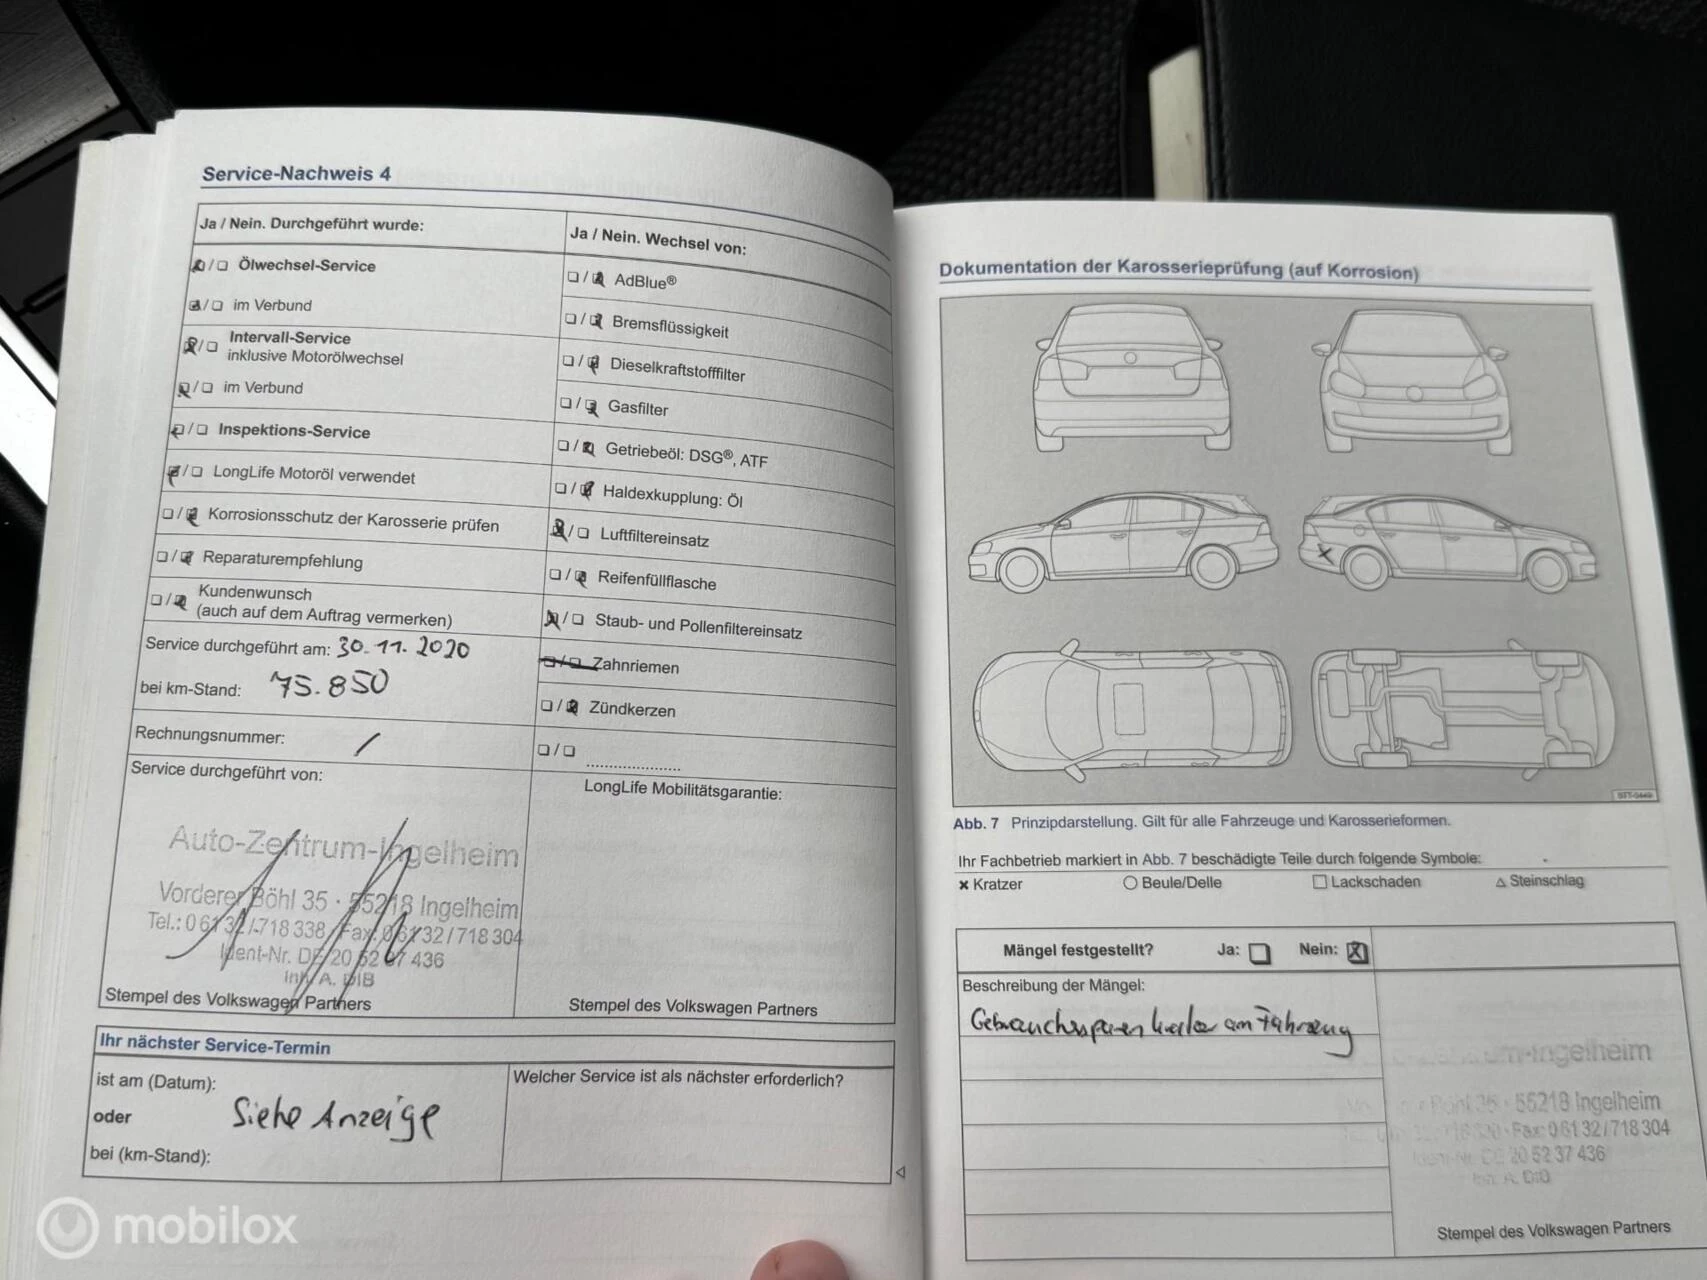 Service-Nachweis 4
Ja / Nein. Durchgeführt wurde:
Ölwechsel-Service
im Verbund
Intervall-Service
inklusive Motorölwechsel
im Verbund
Inspektions-Service
LongLife Motoröl verwendet
Korrosionsschutz der Karosserie prüfen
Reparaturempfehlung
Kundenwunsch
(auch auf dem Auftrag vermerken)
Service durchgeführt am: 30.11.2020
bei km-Stand: 75.850
Rechnungsnummer: /
Service durchgeführt von:
Auto-Zentrum-Ingelheim
Vorderer Böhl 35 · 55218 Ingelheim
Tel.: 0 61 32 / 718 338 Fax: 0 61 32 / 718 304
Ident-Nr. DE 20 52 37 436
Inh. A. DIB
Stempel des Volkswagen Partners
Ja / Nein. Wechsel von:
AdBlue®
Bremsflüssigkeit
Dieselkraftstofffilter
Gasfilter
Getriebeöl: DSG®, ATF
Haldexkupplung: Öl
Luftfiltereinsatz
Reifenfüllflasche
Staub- und Pollenfiltereinsatz
Zahnriemen
Zündkerzen
LongLife Mobilitätsgarantie:
Stempel des Volkswagen Partners
Ihr nächster Service-Termin
ist am (Datum):
oder
Siehe Anzeige
bei (km-Stand):
Welcher Service ist als nächster erforderlich?
Dokumentation der Karosserieprüfung (auf Korrosion)
Abb. 7 Prinzipdarstellung. Gilt für alle Fahrzeuge und Karosserieformen.
Ihr Fachbetrieb markiert in Abb. 7 beschädigte Teile durch folgende Symbole:
× Kratzer ○ Beule/Delle □ Lackschaden △ Steinschlag
Mängel festgestellt? Ja: Nein: X
Beschreibung der Mängel:
Gebrauchsspuren am Fahrzeug
-Ingelheim
35 · 55218 Ingelheim
Fax: 0 61 32 / 718 304
Ident-Nr. DE 20 52 37 436
Inh. A. DIB
Stempel des Volkswagen Partners
mobilox